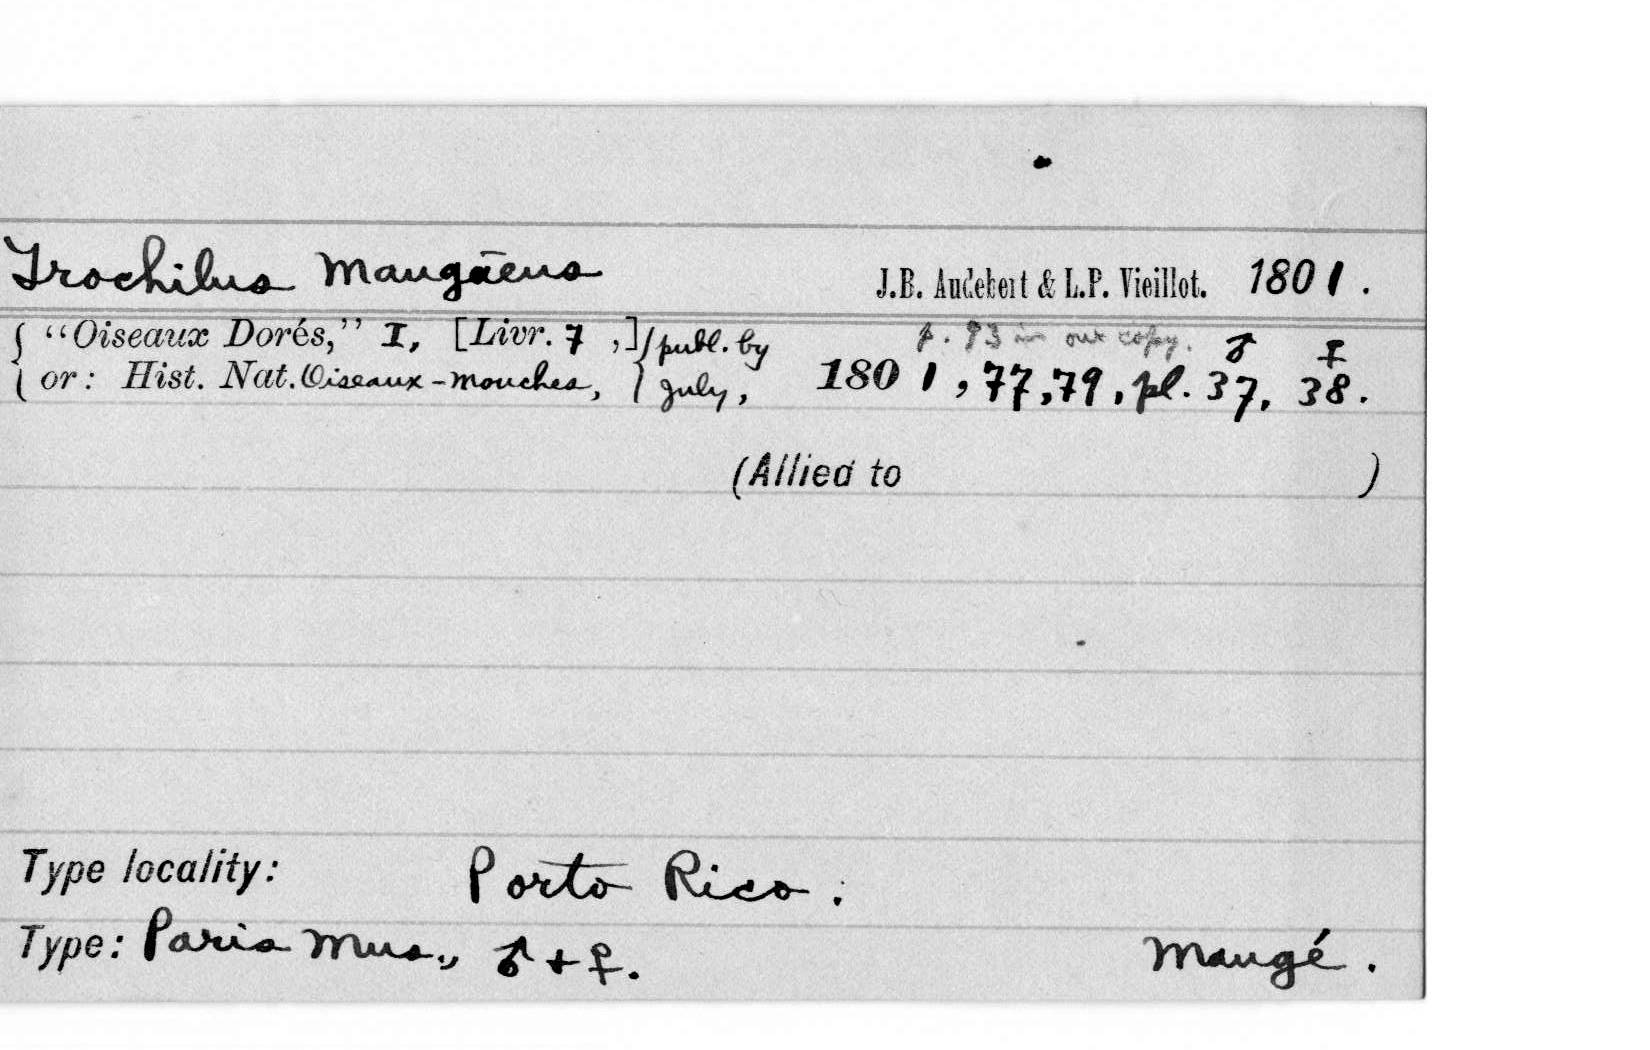 Trochilus Maugāeus J.B. Audebert & L.P. Vieillot. 1801.
{ "Oiseaux Dorés," I, [Livr. 7 ,] } publ. by p. 93 in our copy. ♂ ♀
{ or: Hist. Nat. Oiseaux-mouches, } July, 1801, 77, 79, pl. 37, 38.
(Allied to )
Type locality: Porto Rico.
Type: Paris Mus., ♂ + ♀. Maugé.